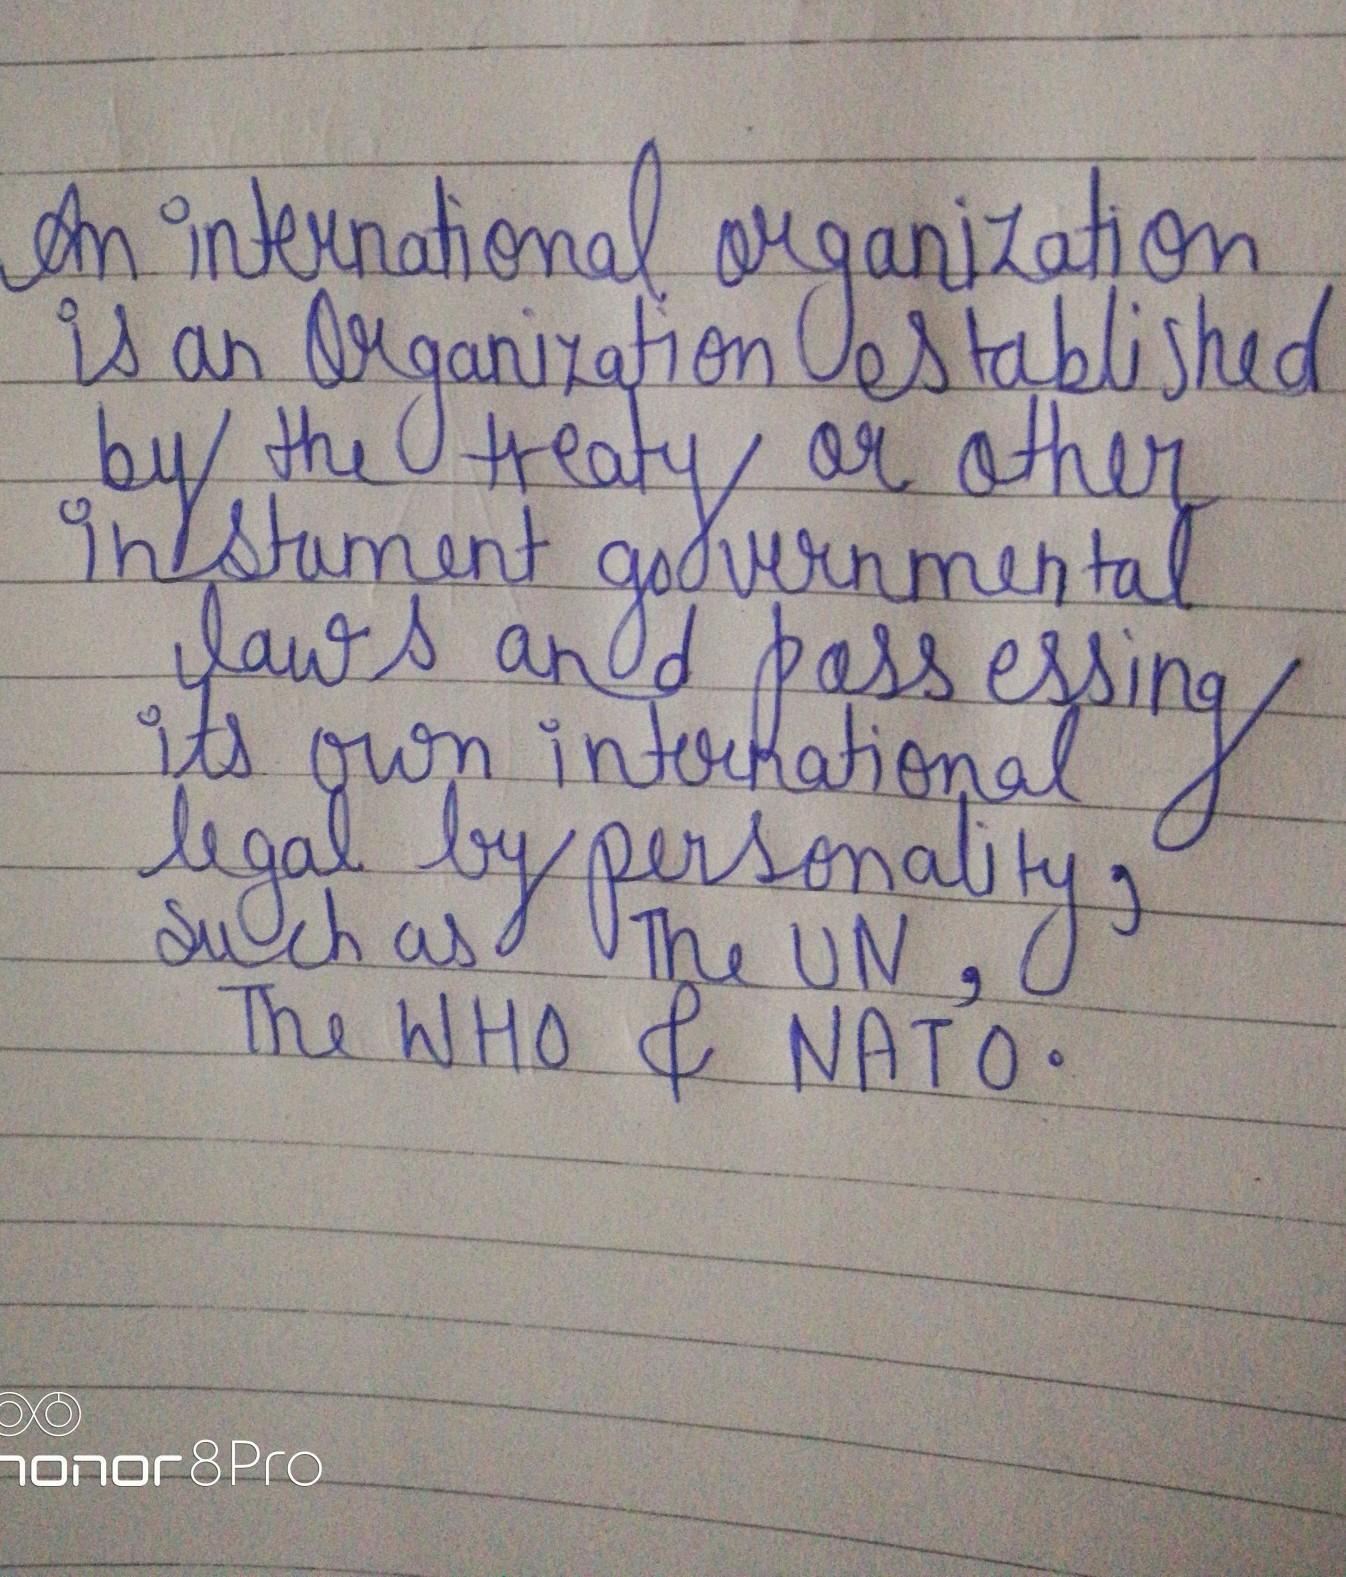 An international organization
is an Organization established
by the treaty or other
instument governmental
laws and possessing
its own international
legal by personality,
such as The UN,
The WHO & NATO.
honor 8Pro